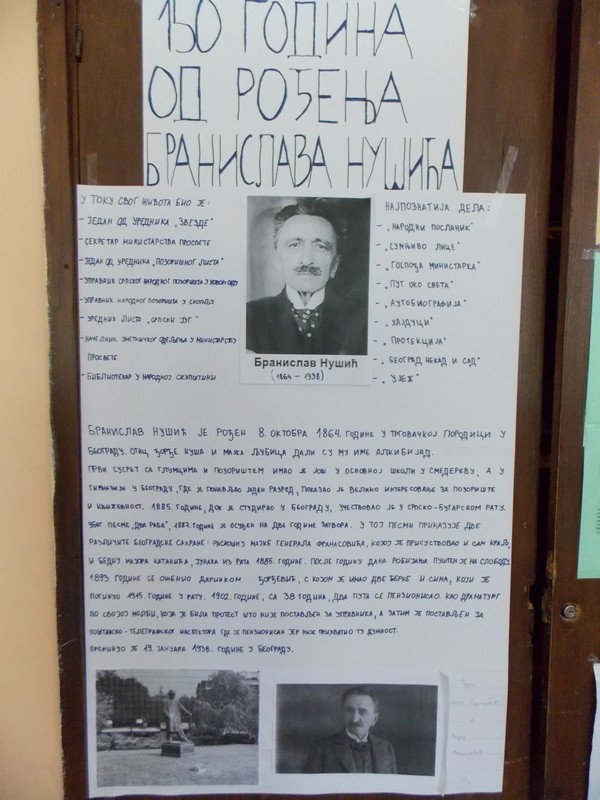 150 ГОДИНА
ОД РОЂЕЊА
БРАНИСЛАВА НУШИЋА
У ТОКУ СВОГ ЖИВОТА БИО ЈЕ:
- ЈЕДАН ОД УРЕДНИКА „ЗВЕЗДЕ"
- СЕКРЕТАР МИНИСТАРСТВА ПРОСВЕТЕ
- ЈЕДАН ОД УРЕДНИКА „ПОЗОРИШНОГ ЛИСТА"
- УПРАВНИК СРПСКОГ НАРОДНОГ ПОЗОРИШТА У НОВОМ САДУ
- УПРАВНИК НАРОДНОГ ПОЗОРИШТА У СКОПЉУ
- УРЕДНИК ЛИСТА „СРПСКИ ЈУГ"
- НАЧЕЛНИК УМЕТНИЧКОГ ОДЕЉЕЊА У МИНИСТАРСТВУ
ПРОСВЕТЕ
- БИБЛИОТЕКАР У НАРОДНОЈ СКУПШТИНИ
Бранислав Нушић
(1864 - 1938)
НАЈПОЗНАТИЈА ДЕЛА:
- „НАРОДНИ ПОСЛАНИК"
- „СУМЊИВО ЛИЦЕ"
- „ГОСПОЂА МИНИСТАРКА"
- „ПУТ ОКО СВЕТА"
- „АУТОБИОГРАФИЈА"
- „ХАЈДУЦИ"
- „ПРОТЕКЦИЈА"
- „БЕОГРАД НЕКАД И САД"
- „УЈЕЖ"
БРАНИСЛАВ НУШИЋ ЈЕ РОЂЕН 8. ОКТОБРА 1864. ГОДИНЕ У ТРГОВАЧКОЈ ПОРОДИЦИ У
БЕОГРАДУ. ОТАЦ ЂОРЂЕ НУША И МАЈКА ЉУБИЦА ДАЛИ СУ МУ ИМЕ АЛКИБИЈАД.
ПРВИ СУСРЕТ СА ГЛУМЦИМА И ПОЗОРИШТЕМ ИМАО ЈЕ ЈОШ У ОСНОВНОЈ ШКОЛИ У СМЕДЕРЕВУ, А У
ГИМНАЗИЈИ У БЕОГРАДУ, ГДЕ ЈЕ ПОНАВЉАО ЈЕДАН РАЗРЕД, ПОКАЗАО ЈЕ ВЕЛИКО ИНТЕРЕСОВАЊЕ ЗА ПОЗОРИШТЕ
И КЊИЖЕВНОСТ. 1885. ГОДИНЕ, ДОК ЈЕ СТУДИРАО У БЕОГРАДУ, УЧЕСТВОВАО ЈЕ У СРПСКО-БУГАРСКОМ РАТУ.
ЗБОГ ПЕСМЕ „ДВА РАБА", 1887. ГОДИНЕ ЈЕ ОСУЂЕН НА ДВЕ ГОДИНЕ ЗАТВОРА. У ТОЈ ПЕСМИ ПРИКАЗУЈЕ ДВЕ
РАЗЛИЧИТЕ БЕОГРАДСКЕ САХРАНЕ: РАСКОШНУ МАЈКЕ ГЕНЕРАЛА ФРАНАСОВИЋА, КОЈОЈ ЈЕ ПРИСУСТВОВАО И САМ КРАЉ,
И БЕДНУ МАЈОРА КАТАНИЋА, ЈУНАКА ИЗ РАТА 1885. ГОДИНЕ. ПОСЛЕ ГОДИНУ ДАНА РОБИЈАЊА ПУШТЕН ЈЕ НА СЛОБОДУ.
1893. ГОДИНЕ СЕ ОЖЕНИО ДАРИНКОМ ЂОРЂЕВИЋ, С КОЈОМ ЈЕ ИМАО ДВЕ ЋЕРКЕ И СИНА, КОЈИ ЈЕ
ПОГИНУО 1915. ГОДИНЕ У РАТУ. 1902. ГОДИНЕ, СА 38 ГОДИНА, ДВА ПУТА СЕ ПЕНЗИОНИСАО. КАО ДРАМАТУРГ
ПО СВОЈОЈ МОЛБИ, КОЈА ЈЕ БИЛА ПРОТЕСТ ШТО НИЈЕ ПОСТАВЉЕН ЗА УПРАВНИКА, А ЗАТИМ ЈЕ ПОСТАВЉЕН ЗА
ПОШТАНСКО-ТЕЛЕГРАФСКОГ ИНСПЕКТОРА ГДЕ ЈЕ ПЕНЗИОНИСАН ЈЕР НИЈЕ ПРИХВАТИО ТУ ДУЖНОСТ.
ПРЕМИНУО ЈЕ 19. ЈАНУАРА 1938. ГОДИНЕ У БЕОГРАДУ.